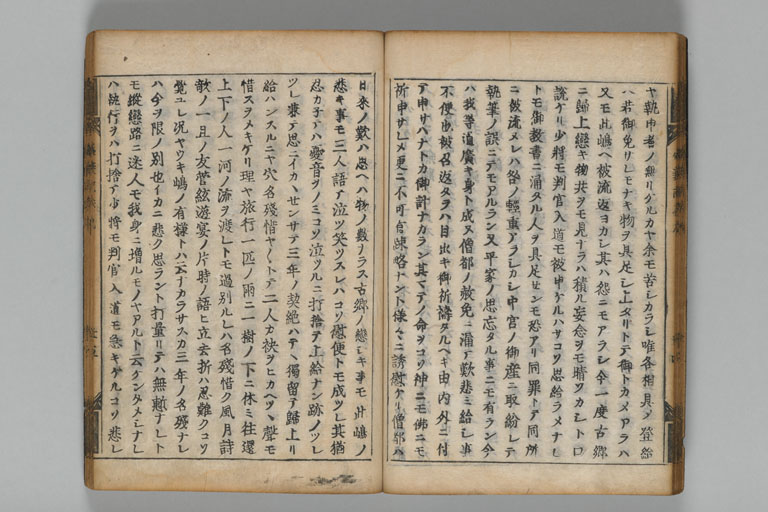 ヤ執申者ノ無リケルカヤ余モ苦シカラシ唯各相具メ登給
ハ若御免サレモナキ物ヲ具足シ上タリトテ御トカメアラハ
又モ此嶋ヘ被流返ヨカシ其ハ怨ニモアラシ今一度古郷
ニ歸上戀キ物共ヲモ見ナラハ積ル妄念ヲモ晴ツカシトロ
説ケリ少將モ判官入道モ被申ケルハサコソ思給ラメナレ
トモ御教書ニ漏タル人ヲ具足センモ恐アリ同罪トテ同所
ニ被流メレハ咎ノ輕重アラシカシ中宮ノ御産ニ取紛レテ
執筆ノ誤ニテモアルラン又平家ノ思忘タル事ニモ有ラン今
ハ我等道廣キ身ト成ヌ僧都ノ赦免ニ漏テ歎悲ミ給シ事
不便也被召返タラハ目出キ御祈禱タルヘキ由内外ニ付
テ申サハナトカ御計ナカラン其マテノ命ヲコソ神ニモ佛ニモ
祈申サレメ更ニ不可有疎略ナント様々ニ誘慰ケリ僧都ハ
日来ノ歎ハ思ヘハ物ノ數ナラス古郷ノ戀シキ事モ此嶋ノ
悲キ事モ三人語テ泣ツ笑ツスレハコソ慰便トモ成ツレ其猶
忍カ子テハ憂音ヲノミコソ泣ツルニ打捨テ上給ナン跡ノツレ
ツレ兼テ思ニイカヽセンサテ三年ノ契絶ハテヽ獨留テ歸上リ
給ハンスルニヤ穴名殘惜ヤ〳〵トテ二人カ袂ヲヒカヘツヽ聲モ
惜スヲメキケリ理ヤ旅行一匹ノ雨ニ一樹ノ下ニ休ミ往還
上下ノ人一河ノ流ヲ渡シトモ過別ルレハ名殘惜ク風月詩
歌ノ一旦ノ友管絃遊宴ノ片時ノ語ヒ立去折ハ忍難クコソ
覺ユレ况ヤウキ嶋ノ有様トハ云ナカラサスカ三年ノ名殘ナレ
ハ今ヲ限ノ別也イカニ悲ク思ラント打量リテハ無慙ナレト
モ縱戀路ニ迷人モ我身ニ増ルモノヤアルト云ケンタメシナレ
ハ執行ヲハ打捨テ少將モ判官入道モ急キケルコソ悲シ